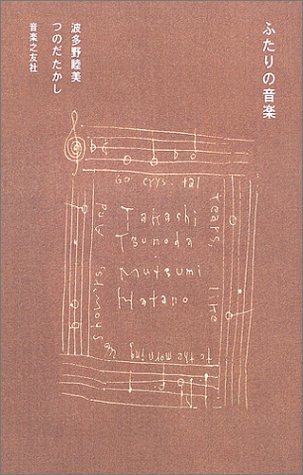 ふたりの音楽
波多野睦美
つのだたかし
音楽之友社
Go crys tal
tears, like
to the morning
showers
Takashi
Tsunoda
Mutsumi
Hatano